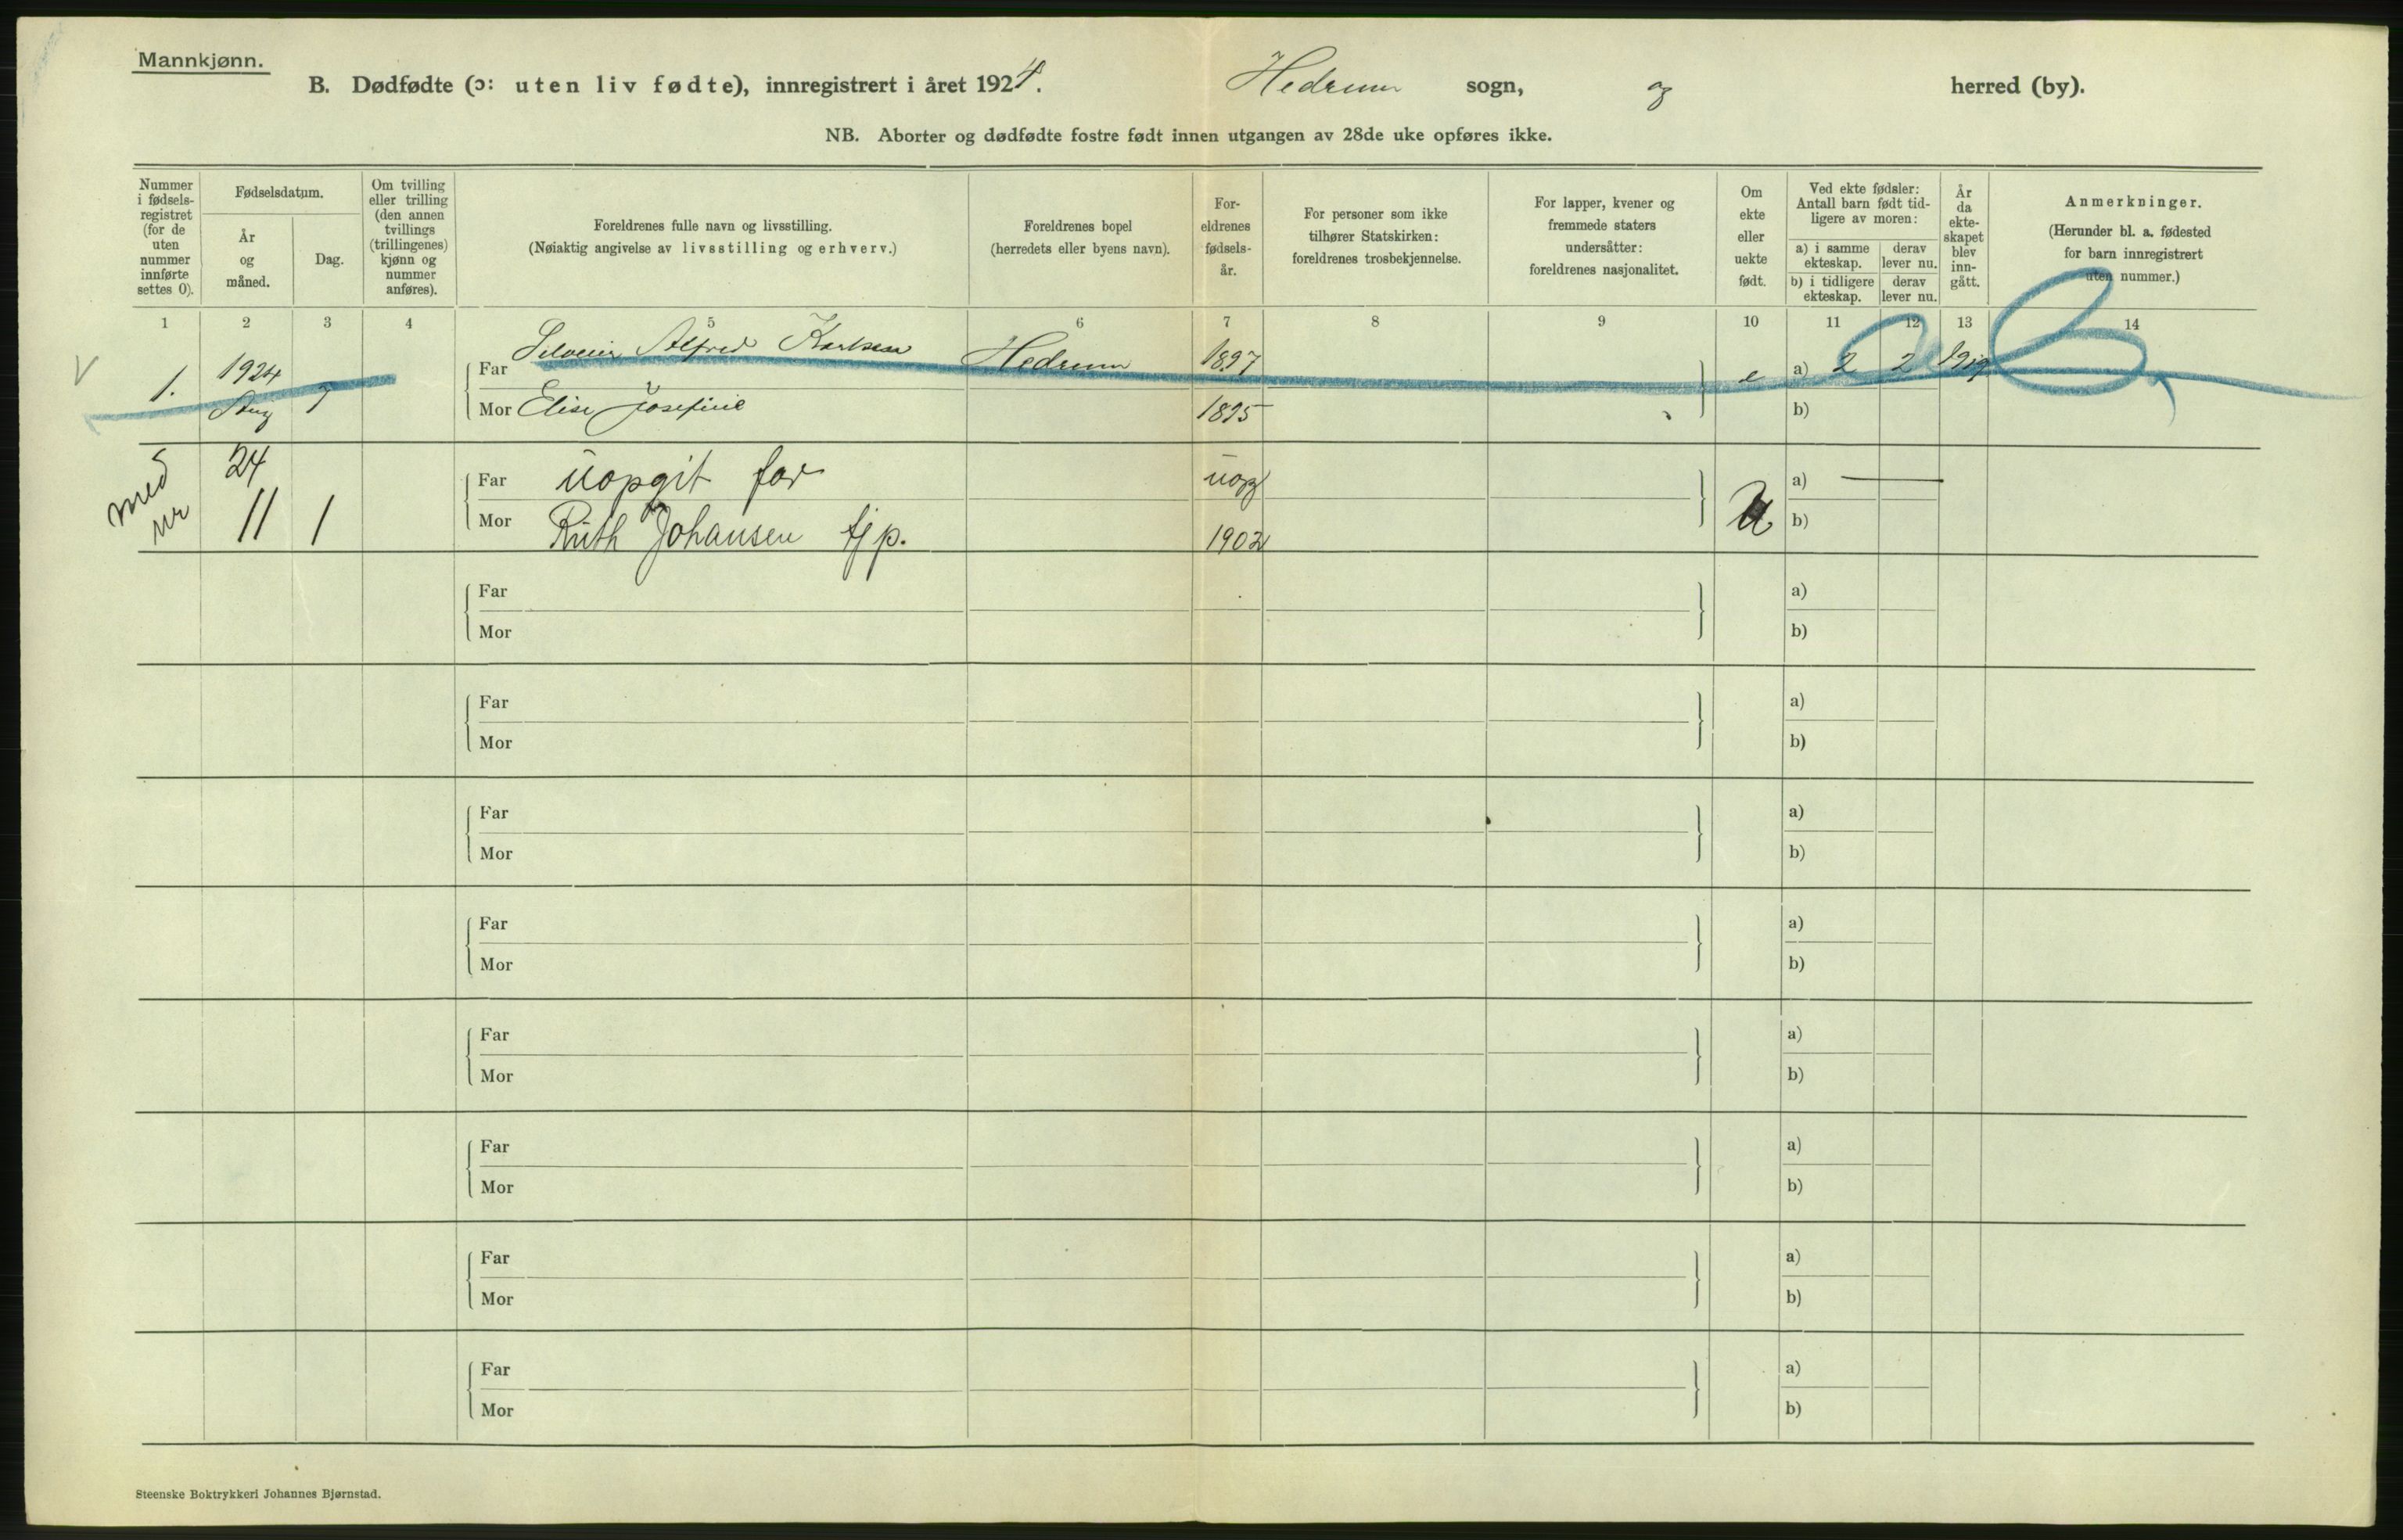 Mannkjønn.
B. Dødfødte (ɔ: uten liv fødte), innregistrert i året 1924. Hedrum sogn, og herred (by).
NB. Aborter og dødfødte fostre født innen utgangen av 28de uke opføres ikke.
Nummer i fødsels-registret (for de uten nummer innførte settes 0).
Fødselsdatum.
År og måned.
Dag.
Om tvilling eller trilling (den annen tvillings (trillingenes) kjønn og nummer anføres).
Foreldrenes fulle navn og livsstilling.
(Nøiaktig angivelse av livsstilling og erhverv.)
Foreldrenes bopel
(herredets eller byens navn).
For-eldrenes fødsels-år.
For personer som ikke tilhører Statskirken: foreldrenes trosbekjennelse.
For lapper, kvener og fremmede staters undersåtter: foreldrenes nasjonalitet.
Om ekte eller uekte født.
Ved ekte fødsler: Antall barn født tid-ligere av moren:
a) i samme ekteskap. derav lever nu.
b) i tidligere ekteskap. derav lever nu.
År da ekte-skapet blev inn-gått.
Anmerkninger.
(Herunder bl. a. fødested for barn innregistrert uten nummer.)
1 2 3 4 5 6 7 8 9 10 11 12 13 14
1. 1924 Aug 7 Far Alfred Karlsen Hedrum 1897 e a) 2 2 1919
Mor Elise Josefine 1895 b)
med nr 24 11 1 Far uopgit far uopg U a) —
Mor Ruth Johansen tjp. 1902 b)
Far a)
Mor b)
Far a)
Mor b)
Far a)
Mor b)
Far a)
Mor b)
Far a)
Mor b)
Far a)
Mor b)
Far a)
Mor b)
Far a)
Mor b)
Steenske Boktrykkeri Johannes Bjørnstad.